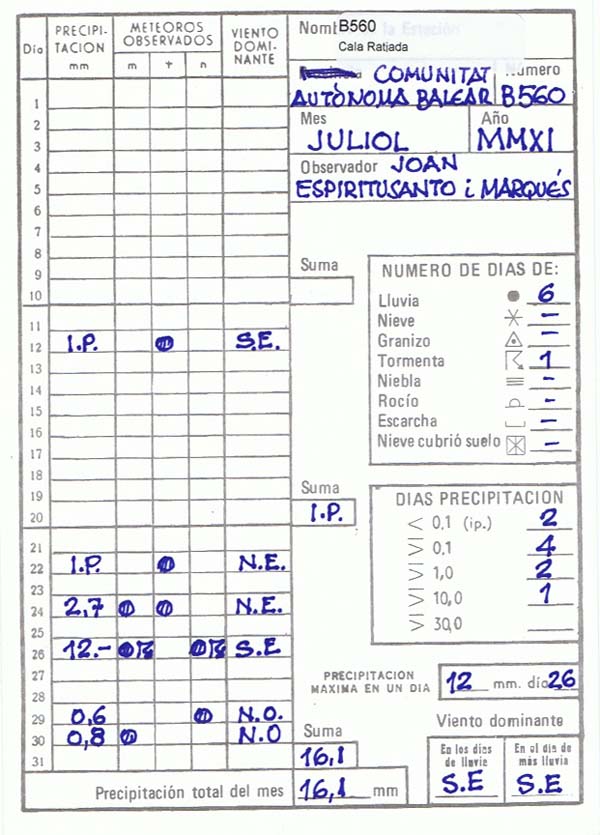 Día PRECIPI- TACION mm METEOROS OBSERVADOS m t n VIENTO DOMI- NANTE
Nomb B560 la Estación
Cala Ratjada
COMUNITAT Número
AUTÒNOMA BALEAR B560
Mes Año
JULIOL MMXI
Observador JOAN
ESPIRITUSANTO i MARQUÉS
1
2
3
4
5
6
7
8
9
10
Suma
11
12 I.P. S.E.
13
14
15
16
17
18
19
20
Suma
I.P.
21
22 I.P. N.E.
23
24 2,7 N.E.
25
26 12.- S.E
27
28
29 0,6 N.O.
30 0,8 N.O
31
Suma
16,1
Precipitación total del mes 16,1 mm
NUMERO DE DIAS DE:
Lluvia 6
Nieve -
Granizo -
Tormenta 1
Niebla -
Rocío -
Escarcha -
Nieve cubrió suelo -
DIAS PRECIPITACION
< 0,1 (ip.) 2
≥ 0,1 4
≥ 1,0 2
≥ 10,0 1
≥ 30,0
PRECIPITACION
MAXIMA EN UN DIA 12 mm. día 26
Viento dominante
En los días El el día de
de lluvia más lluvia
S.E S.E